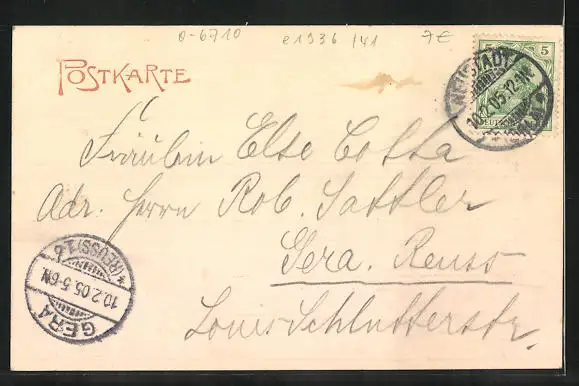 0-6710 e1936 /41 7€
POSTKARTE
5 5
NEUSTADT
10.2.05.12-1N.
Fräulein Else Cotta
Adr. Herrn Rob. Sattler
Gera. Reuss
Louis Schlutterstr.
GERA
10.2.05.5-6N
*(REUSS)1.b